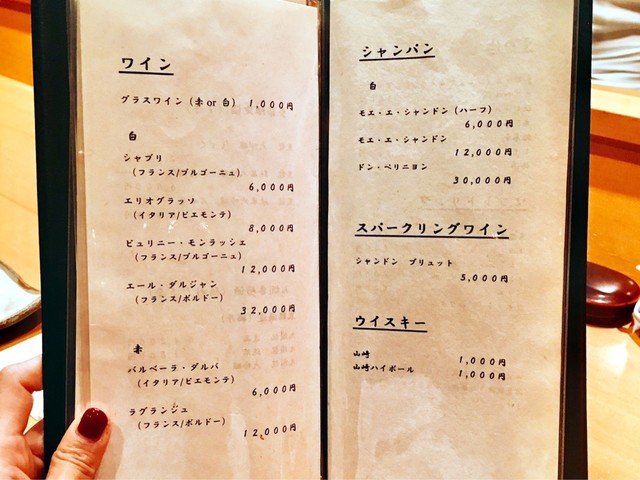 ワイン
グラスワイン（赤 or 白） 1,000円
白
シャブリ
（フランス/ブルゴーニュ）
6,000円
エリオグラッソ
（イタリア/ピエモンテ）
8,000円
ピュリニー・モンラッシェ
（フランス/ブルゴーニュ）
12,000円
エール・ダルジャン
（フランス/ボルドー）
32,000円
赤
バルベーラ・ダルバ
（イタリア/ピエモンテ）
6,000円
ラグランジュ
（フランス/ボルドー）
12,000円
シャンパン
白
モエ・エ・シャンドン（ハーフ）
6,000円
モエ・エ・シャンドン
12,000円
ドン・ペリニヨン
30,000円
スパークリングワイン
シャンドン ブリュット
5,000円
ウイスキー
山崎 1,000円
山崎ハイボール 1,000円